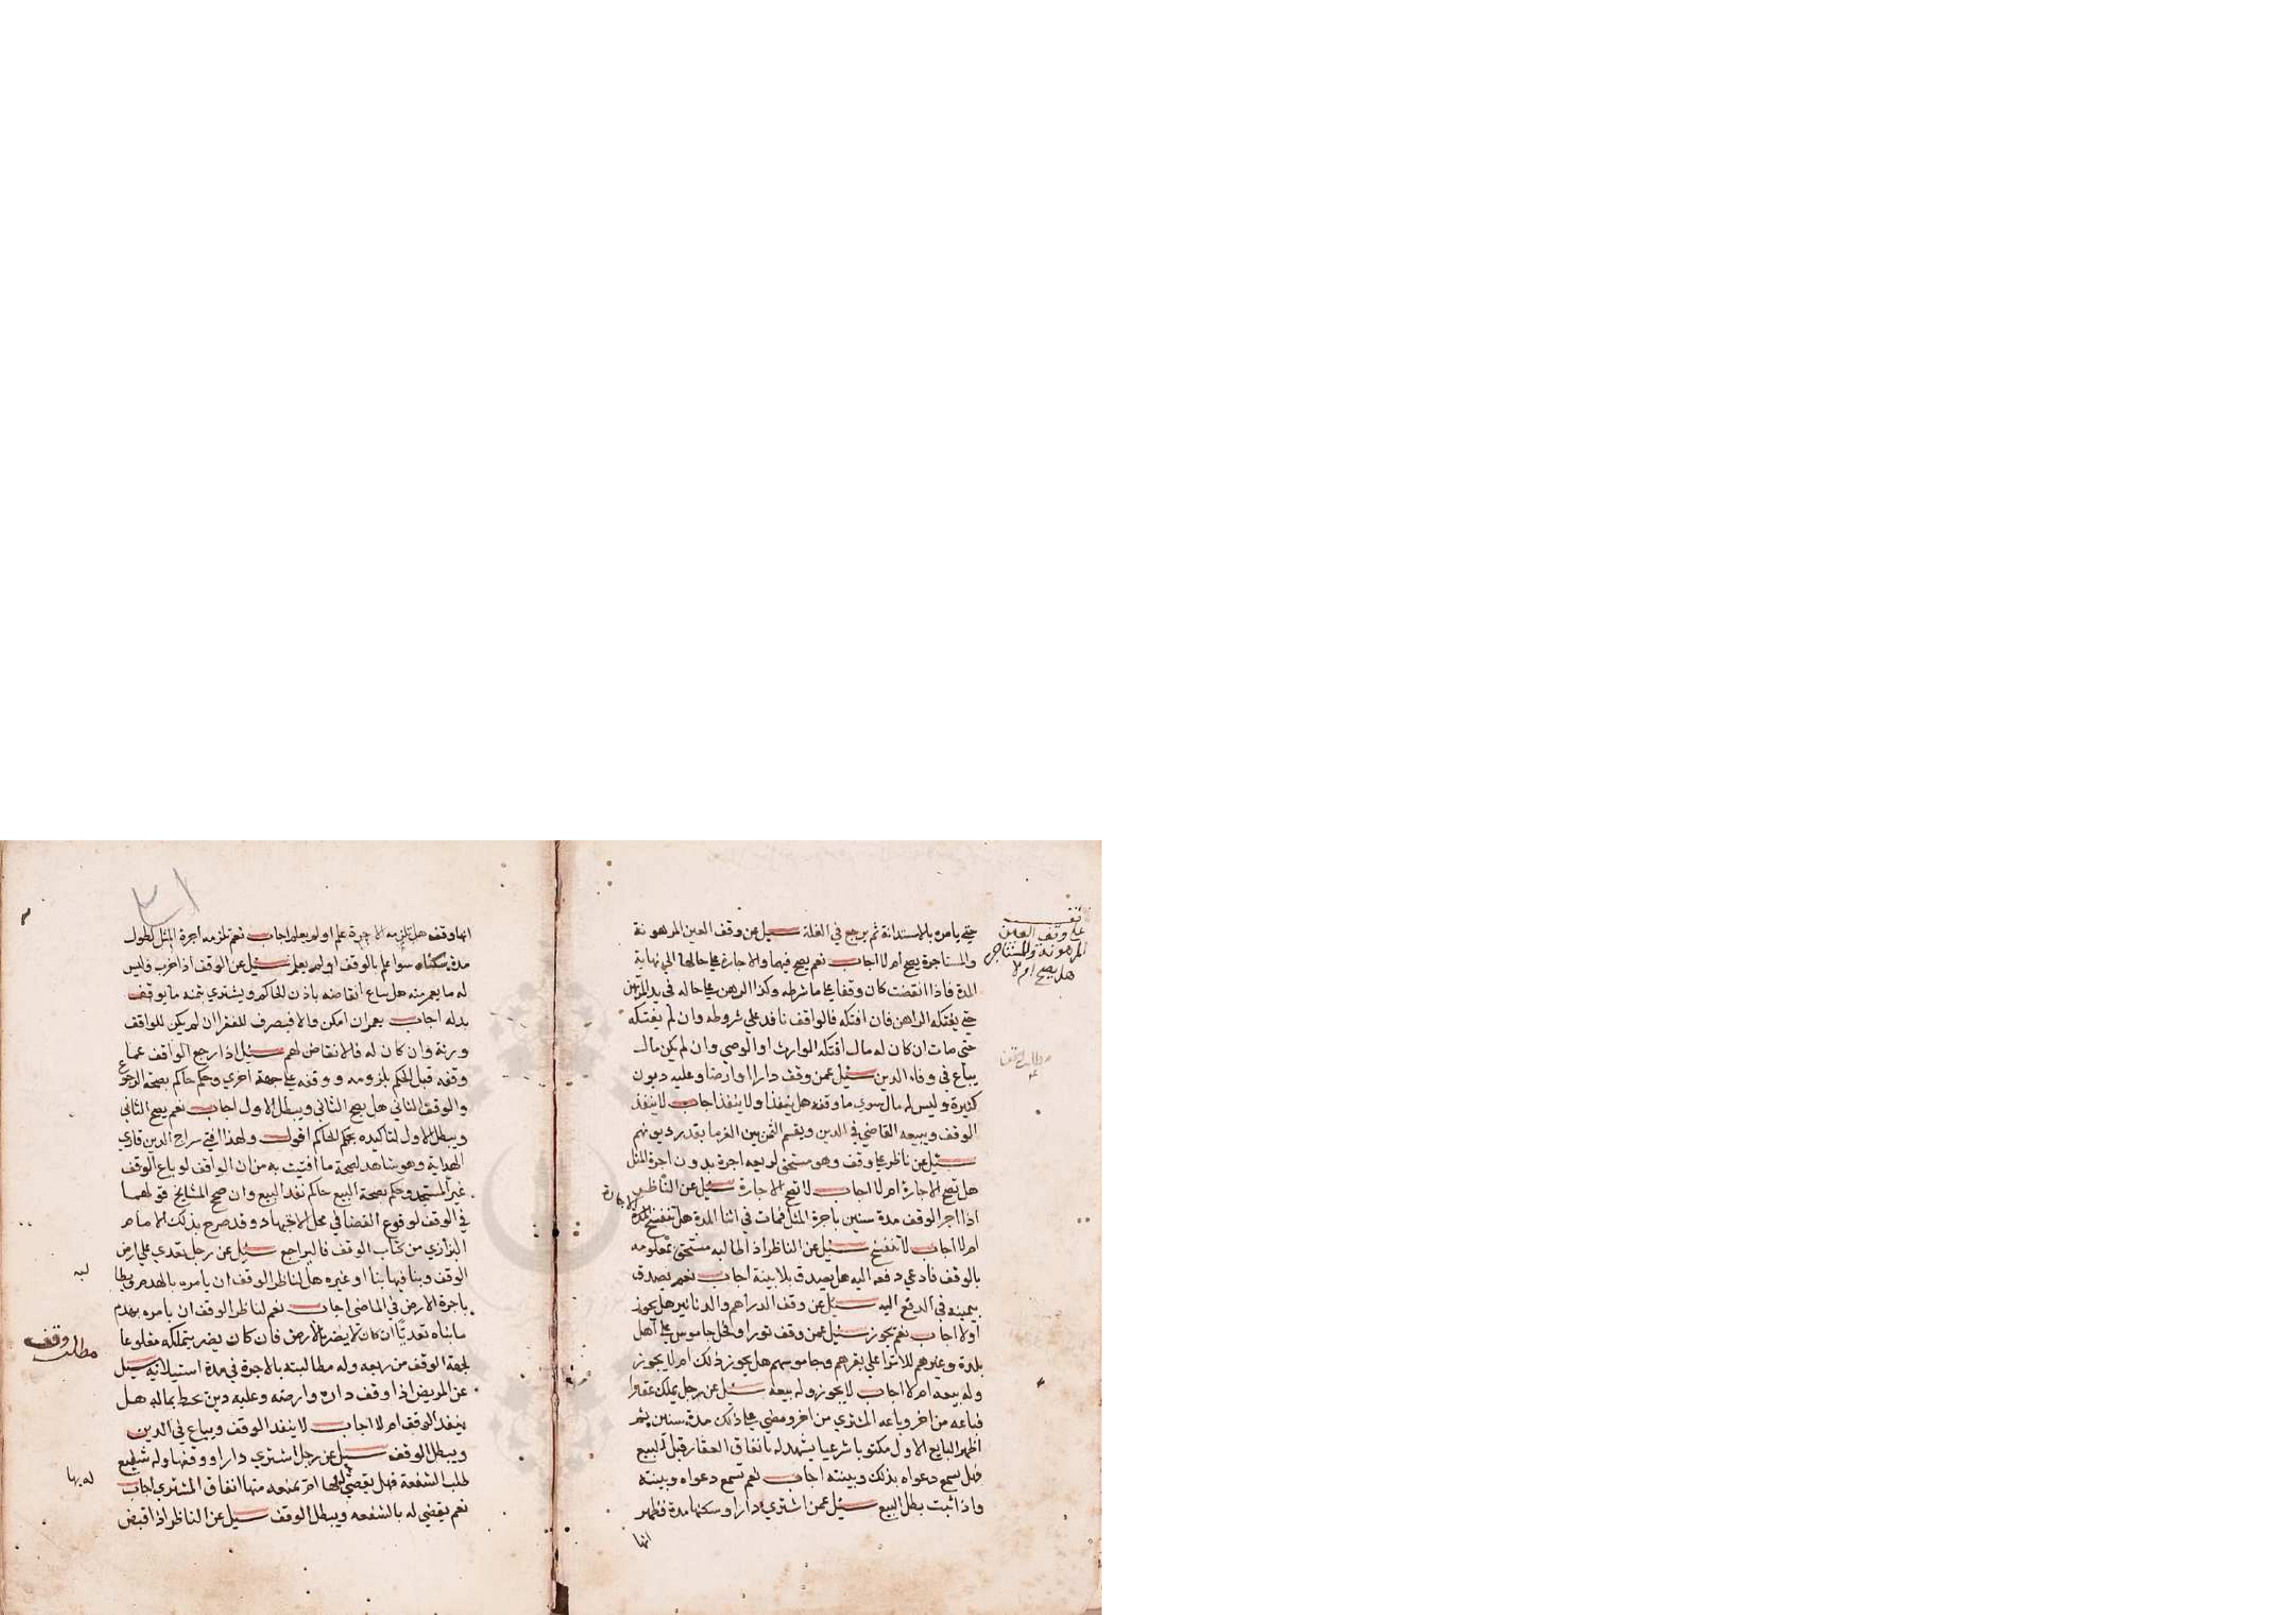 حتى يامره بالاستدانة ثم يرجع في الغلة سئيل عن وقف العين المرهونة
والمستاجرة يصح ام لا اجاب نعم يصح فيهما والاجارة على حالها الى نهاية
المدة فاذا انقضت كان وقفا على ما شرطه وكذا الرهن على حاله في يد المرتهن
حتى يفتكه الراهن فان افتكه فالواقف نافد على شروطه وان لم يفتكه
حتى مات ان كان له مال افتكه الوارث او الوصي وان لم يكن مال
يباع في وفاء الدين سئيل عمن وقف دارا او ارضا وعليه ديون
كثيرة وليس له مال سوى ما وقفه هل ينفذ او لا ينفذ اجاب لا ينفذ
الوقف ويبيعه القاضي في الدين ويقسم الثمن بين الغرما بقدر ديونهم
سئيل عن ناظر على وقف وهو مستحق لريعه اجره بدون اجرة المثل
هل تصح الاجارة ام لا اجاب لا تصح الاجارة سئيل عن الناظر
اذا اجر الوقف مدة سنين باجرة المثل فمات في اثنا المدة هل تنفسخ الاجارة
ام لا اجاب لا تنفسخ سئيل عن الناظر اذا طالبه مستحق بمعلومه
بالوقف فادعى دفعه اليه هل يصدق بلا بينة اجاب نعم يصدق
بيمينه في الدفع اليه سئيل عن وقف الدراهم والدنانير هل يجوز
اولا اجاب نعم يجوز سئيل عمن وقف ثورا او فحل جاموس على اهل
بلدة وغيرهم للانزا على بقرهم وجاموسهم هل يجوز ذلك ام لا يجوز
وله بيعه ام لا اجاب لا يجوز وله بيعه سئل عن رجل يملك عقارا
فباعه من اخر وباعه المشتري من اخر ومضى على ذلك مدة سنين ثم
اظهر البايع الاول مكتوبا شرعيا يشهد له بانفاق العقار قبل البيع
فهل تسمع دعواه بذلك وبينته اجاب نعم تسمع دعواه وبينته
واذا ثبت بطل البيع سئيل عمن اشترى دارا وسكنها مدة فظهر
انها
على وقف العين
المرهونة والمستاجرة
هل يصح ام لا
انها وقف هل تلزمه الاجرة علم او لم يعلم اجاب نعم تلزمه اجرة المثل لطول
مدة سكناه سوا علم بالوقف او لم يعلم سئيل عن الوقف اذا خرب وليس
له ما يعمر منه هل تباع انقاضه باذن الحاكم ويشتري بثمنه ما يوقف
بدله اجاب يعمر ان امكن والا فيصرف للفقرا ان لم يكن للواقف
ورثة وان كان له فالانقاض لهم سئيل اذا رجع الواقف عما
وقفه قبل الحكم بلزومه ووقفه على جهة اخرى وحكم حاكم بصحة الرجوع
والوقف الثاني هل يصح الثاني ويبطل الاول اجاب نعم يصح الثاني
ويبطل الاول لتاكيده بحكم الحاكم اقول ولهذا افتى سراج الدين قاري
الهداية وهو شاهد لصحة ما افتيت به من ان الواقف لو باع الوقف
غير المسجد وحكم بصحة البيع حاكم نفد البيع وان صحح المشايخ قولهما
في الوقف لوقوع القضا في محل الاجتهاد وقد صرح بذلك الامام
البزازي من كتاب الوقف فاليراجع سئيل عن رجل تعدى على ارض
الوقف وبنا فيها بنا او غيره هل لناظر الوقف ان يامره بالهدم
باجرة الارض في الماضي اجاب نعم لناظر الوقف ان يامره بهدم
ما بناه تعديا ان كان لا يضر بالارض فان كان يضر يتملكه مقلوعا
لجهة الوقف من ريعه وله مطالبته بالاجرة في مدة استيلائه سئيل
عن المريض اذا وقف داره وارضه وعليه دين محيط بماله هل
ينفد الوقف ام لا اجاب لا ينفد الوقف ويباع في الدين
ويبطل الوقف سئيل عن رجل اشترى دارا ووقفها وله شفيع
طلب الشفعة فهل يقضى له بها ام تمنعه منها انفاق المشتري اجاب
نعم يقضى له بالشفعه ويبطل الوقف سئيل عن الناظر اذا قبض
مطلب وقف
له بها